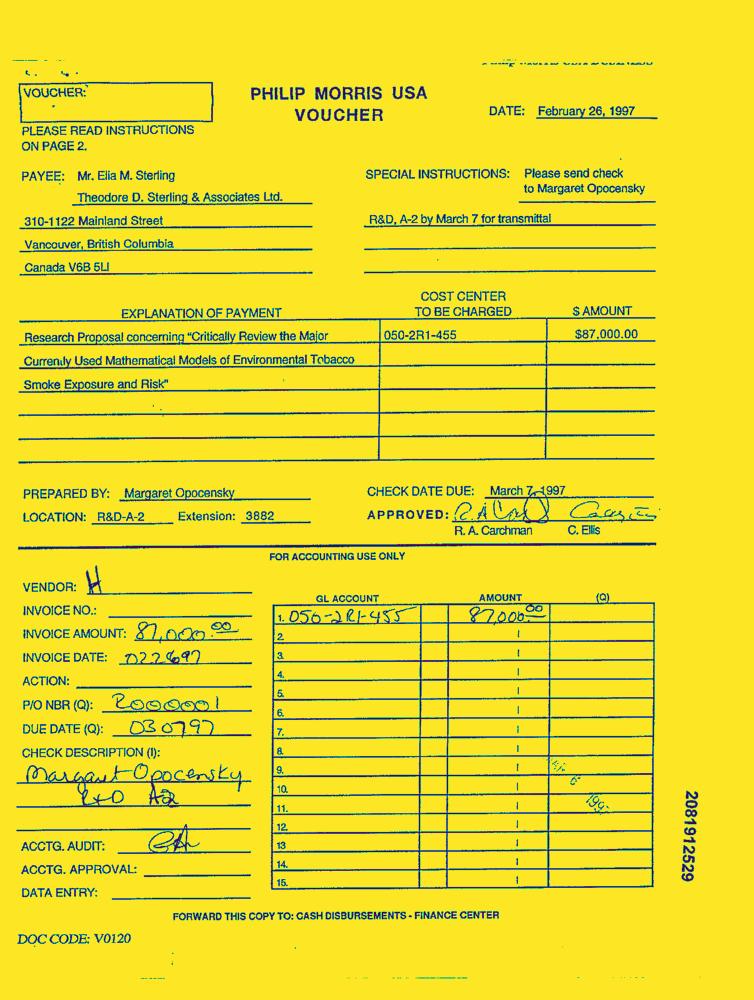 VOUCHER:
PHILIP MORRIS USA
VOUCHER
DATE: February 26, 1997
PLEASE READ INSTRUCTIONS
ON PAGE 2.
PAYEE: Mr. Elia M. Sterling
Theodore D. Sterling & Associates Ltd.
310-1122 Mainland Street
Vancouver, British Columbia
Canada V6B 5LI
SPECIAL INSTRUCTIONS: Please send check
to Margaret Opocensky
R&D, A-2 by March 7 for transmittal
EXPLANATION OF PAYMENT
COST CENTER
TO BE CHARGED
$ AMOUNT
Research Proposal concerning "Critically Review the Major 050-2R1-455 $87,000.00
Currently Used Mathematical Models of Environmental Tobacco
Smoke Exposure and Risk"
PREPARED BY: Margaret Opocensky
CHECK DATE DUE: March 7, 1997
LOCATION: R&D-A-2 Extension: 3882
APPROVED:
R. A. Carchman C. Ellis
FOR ACCOUNTING USE ONLY
VENDOR: H
INVOICE NO.:
INVOICE AMOUNT: 87,000.00
INVOICE DATE: 022697
ACTION:
P/O NBR (Q): 2000001
DUE DATE (Q): 030797
CHECK DESCRIPTION (I):
Margaret Opocensky
R+D A2
ACCTG. AUDIT:
ACCTG. APPROVAL:
DATA ENTRY:
GL ACCOUNT AMOUNT (Q)
1. 050-2R1-455 87,000.00
2.
3.
4.
5.
6.
7.
8.
9.
10.
11.
12.
13
14.
15.
2081912529
FORWARD THIS COPY TO: CASH DISBURSEMENTS - FINANCE CENTER
DOC CODE: V0120